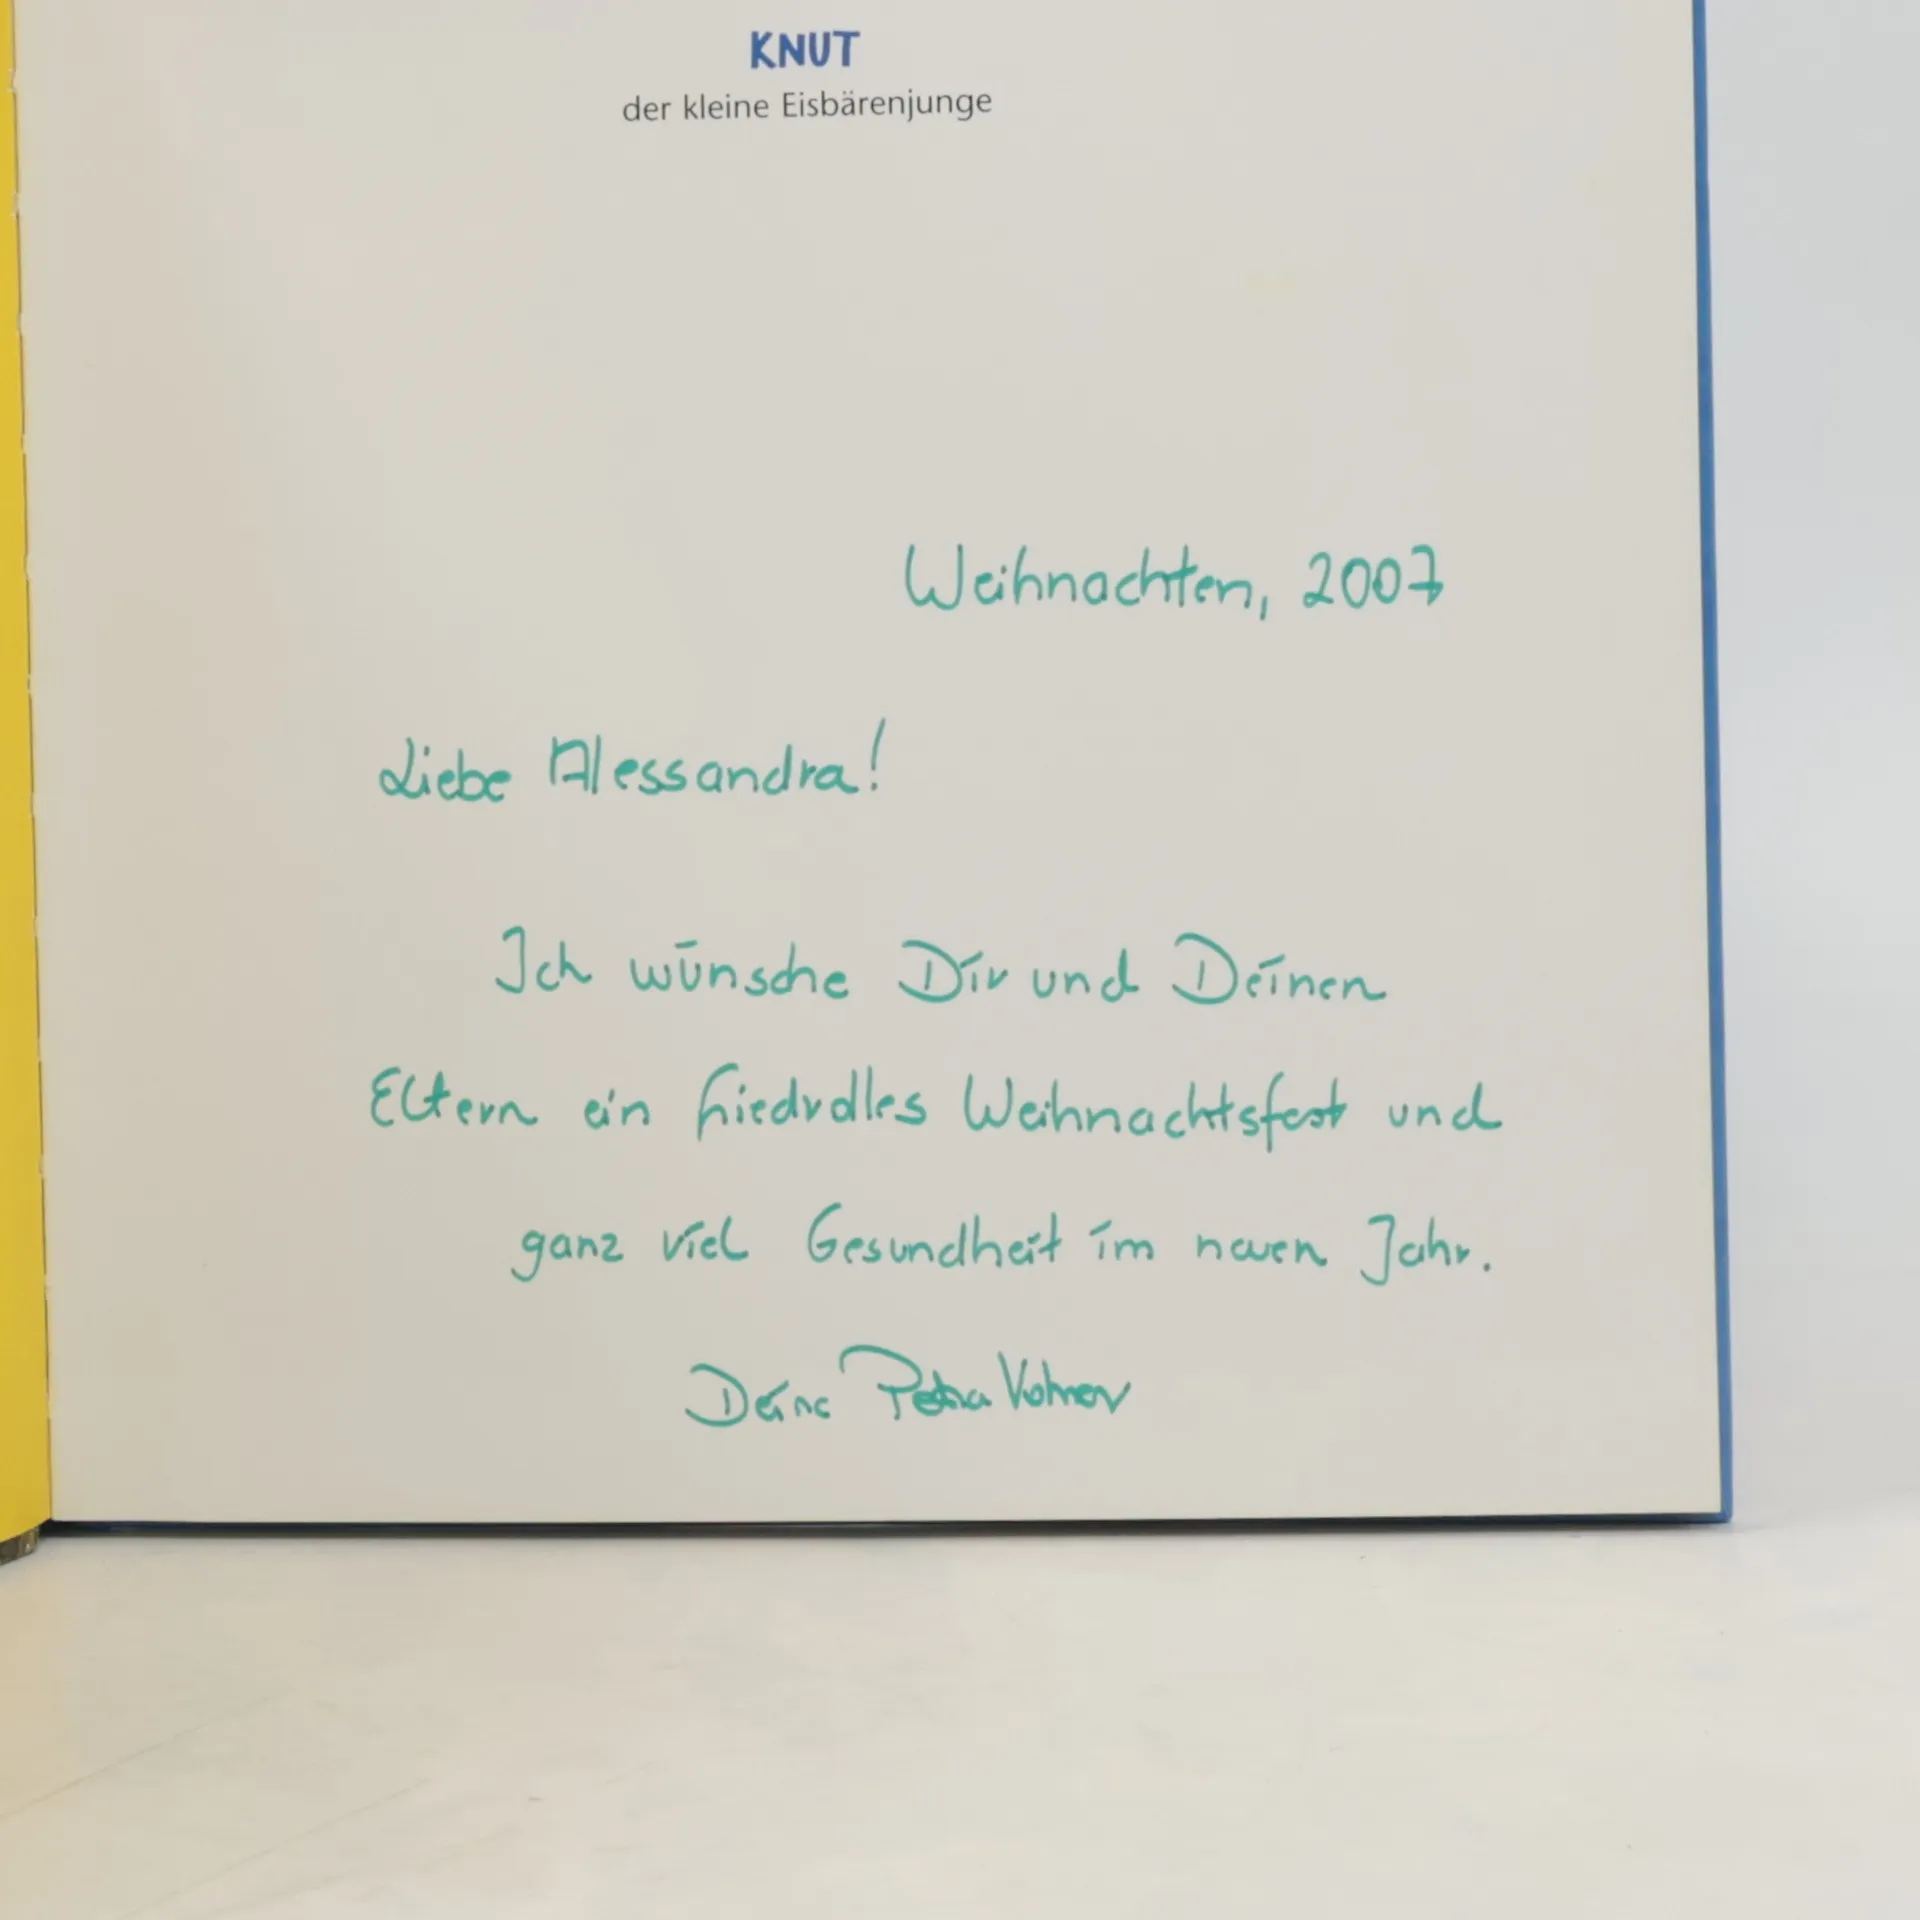 KNUT
der kleine Eisbärenjunge
Weihnachten, 2007
Liebe Alessandra!
Ich wünsche Dir und Deinen
Eltern ein friedvolles Weihnachtsfest und
ganz viel Gesundheit im neuen Jahr.
Deine Petra